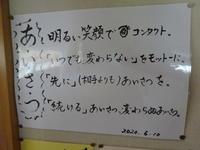 あいさつ
明るい笑顔でコンタクト。
「いつでも変わらない」をモットーに。
「先に」(相手よりも)あいさつを。
「続ける」あいさつ、変わらぬあいさつ。
2020.6.10